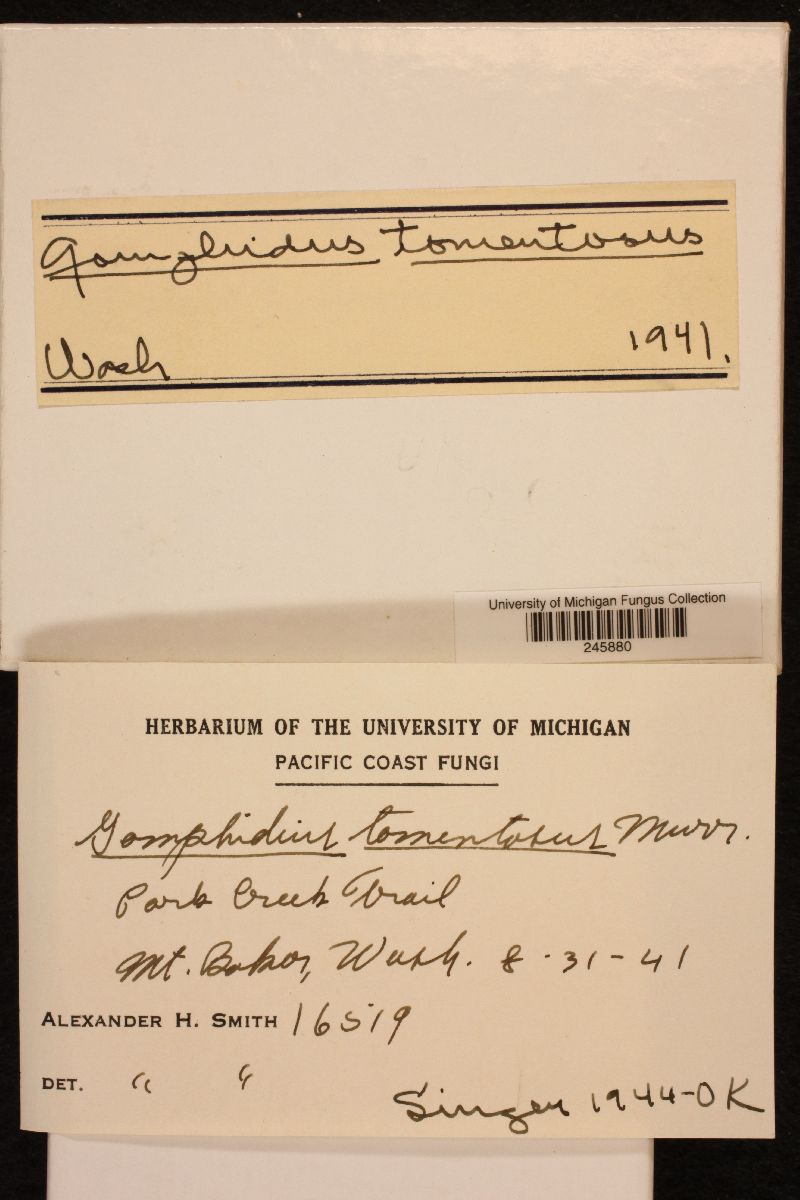 Gomphidius tomentosus
Wash 1941.
University of Michigan Fungus Collection
245880
HERBARIUM OF THE UNIVERSITY OF MICHIGAN
PACIFIC COAST FUNGI
Gomphidius tomentosus Murr.
Park Creek Trail
Mt. Baker, Wash. 8-31-41
ALEXANDER H. SMITH 16519
DET. " "
Singer 1944-OK